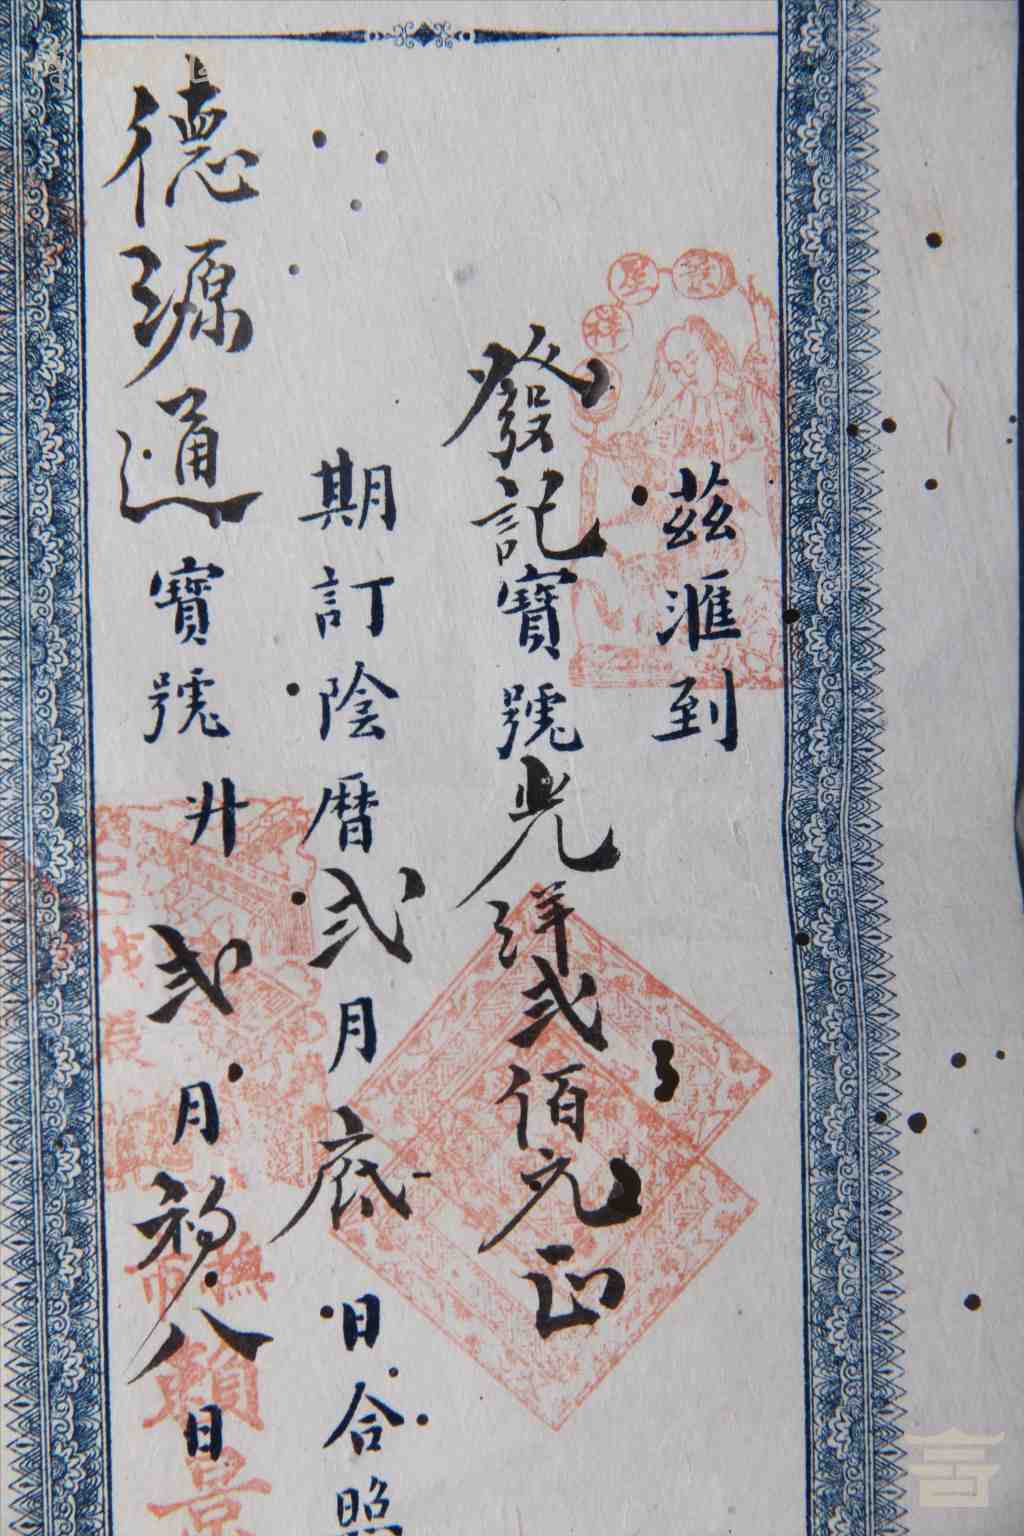 茲滙到
發記寶號光洋弍佰元正
期訂陰曆弍月底日合照
德源通寶號廾弍月初八日
撫市
賴景